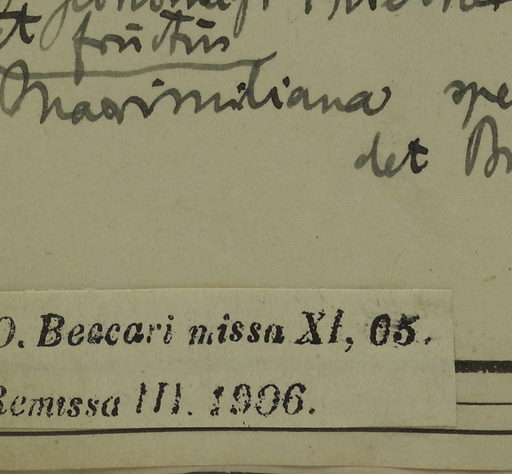 et fructus
Maximiliana spe
det B
O. Beccari missa XI, 05.
Remissa III. 1906.